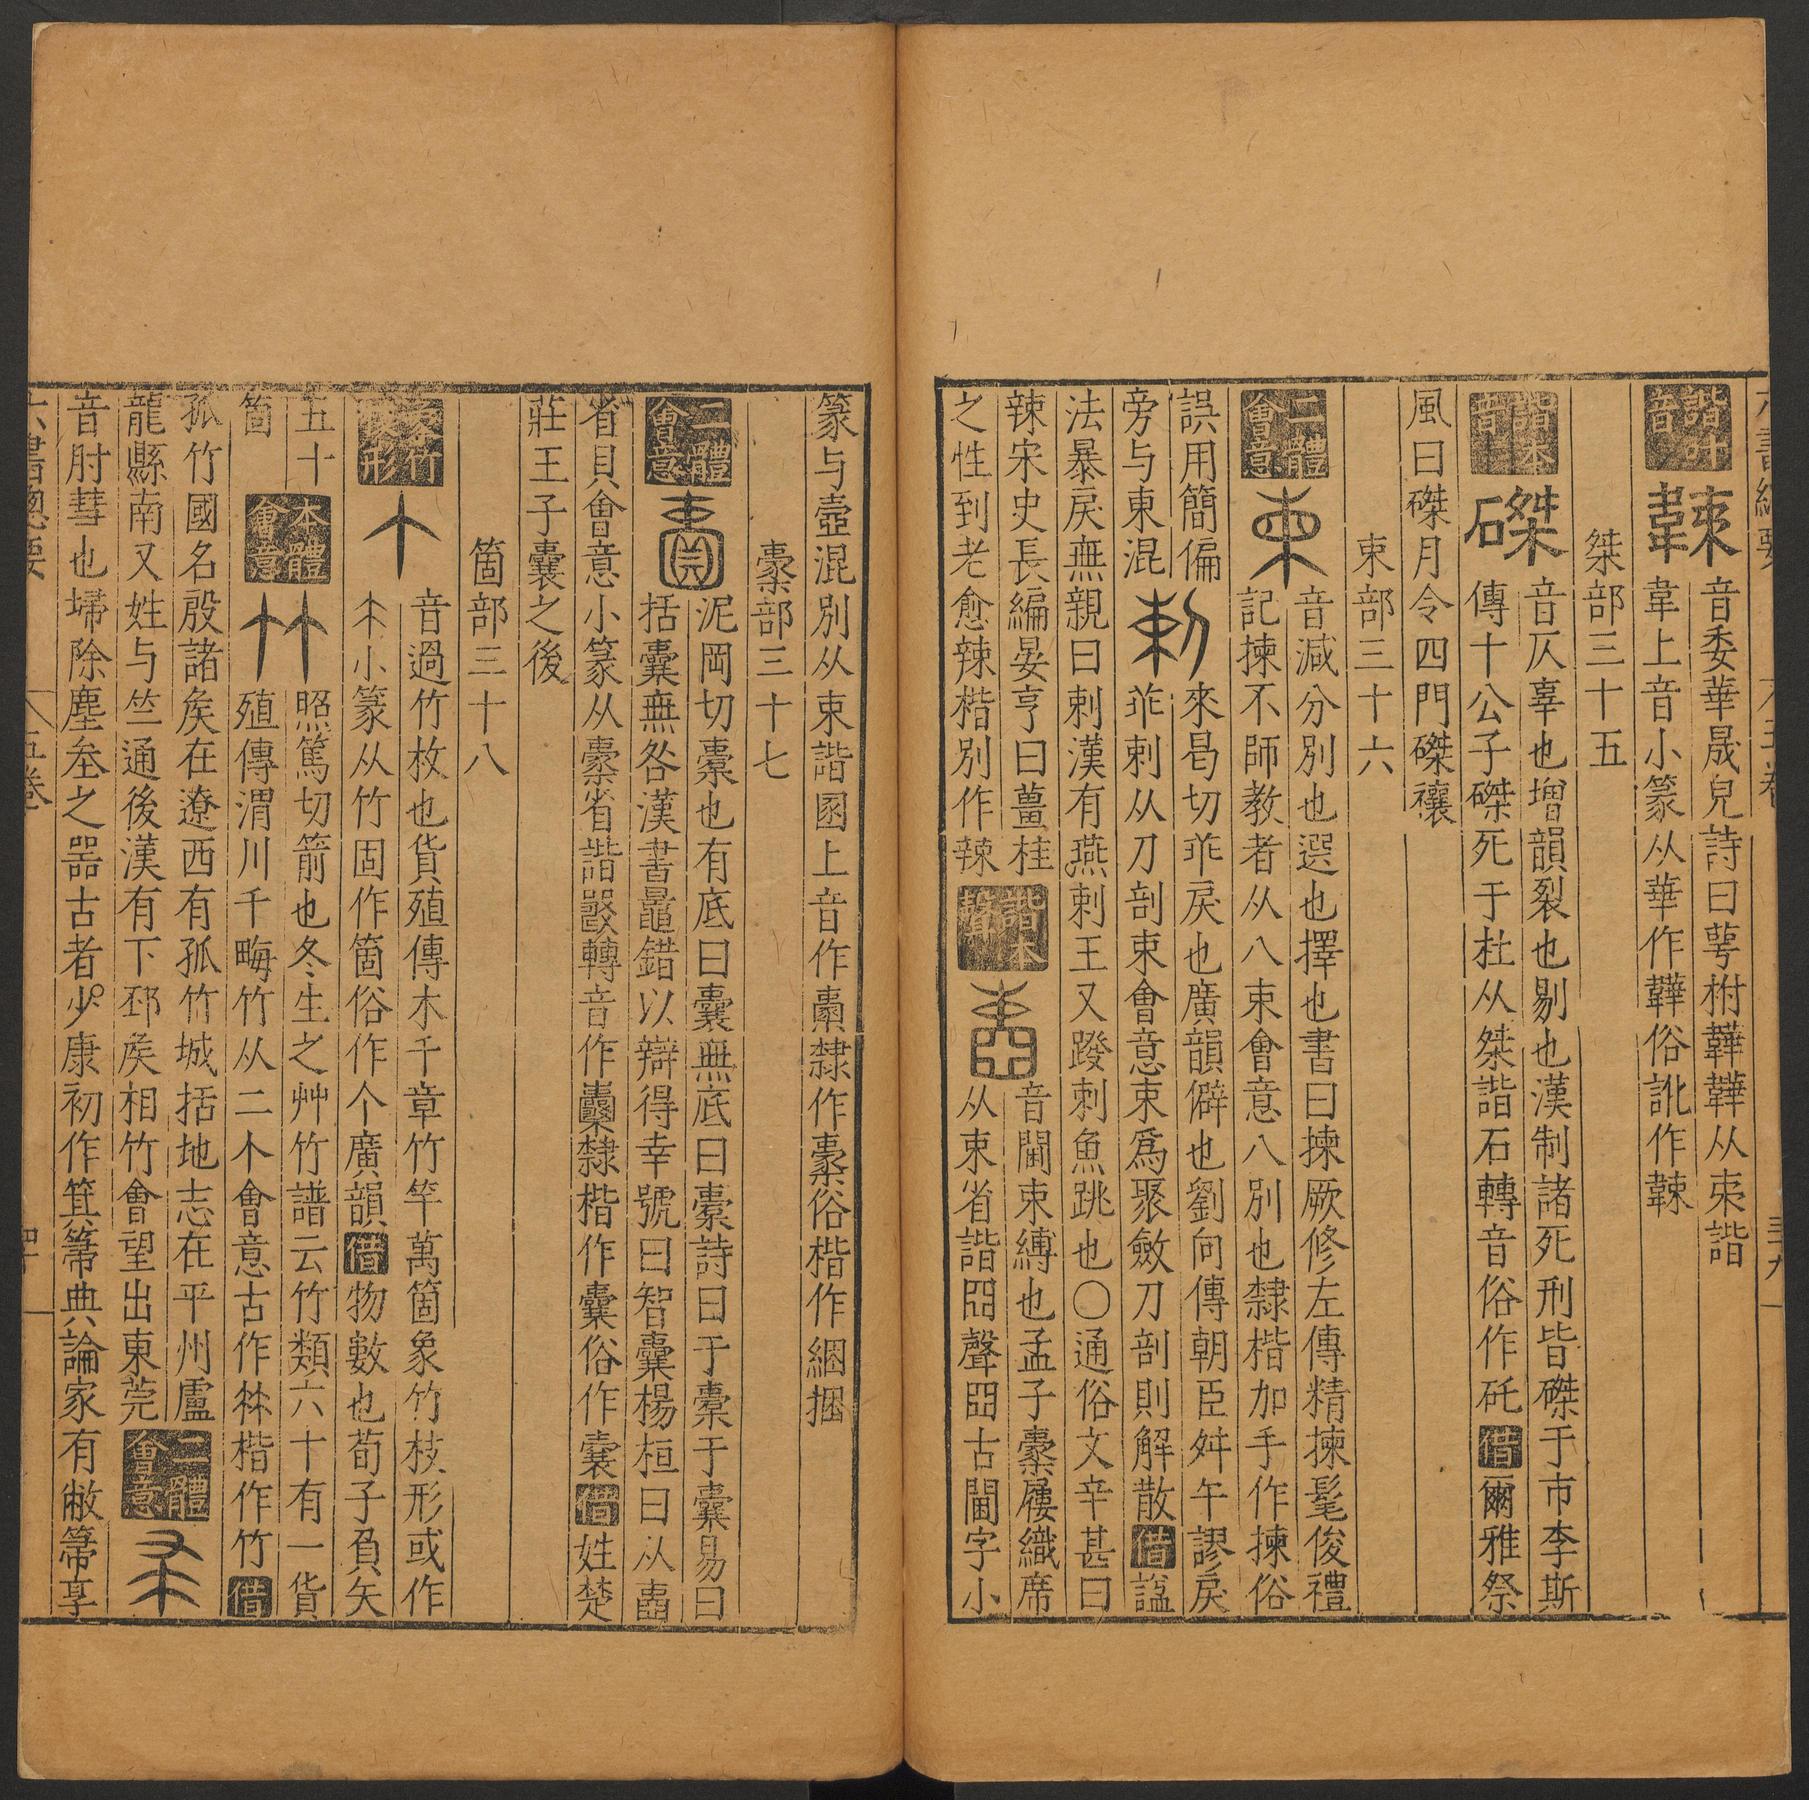 音委華晟皃詩曰萼柎韡韡从㯥諧
韋上音小篆从華作韡俗訛作𩎟
桀部三十五
諧本音
磔
音仄辜也增韻裂也剔也漢制諸死刑皆磔于市李斯
傳十公子磔死于杜从桀諧石轉音俗作矺借爾雅祭
風曰磔月令四門磔禳
束部三十六
二體會意
柬
音減分別也選也擇也書曰揀厥修左傳精揀髦俊禮
記揀不師教者从八束會意八別也隸楷加手作揀俗
誤用簡偏
剌
來曷切乖戾也廣韻僻也劉向傳朝臣舛午謬戾
旁与東混
乖剌从刀剖束會意束爲聚斂刀剖則解散借諡
法暴戻無親曰剌漢有燕剌王又蹳剌魚跳也〇通俗文辛甚曰
辣宋史長編晏亨曰薑桂
之性到老愈辣楷別作辣
諧本聲
音閫束縛也孟子橐屨織席
从束省諧𡇈聲𡇈古閫字小
篆与壺混別从束諧圂上音作橐隸作橐俗楷作綑捆
橐部三十七
二體會意
泥岡切橐也有底曰囊無底曰橐詩曰于橐于囊易曰
括囊無咎漢書鼂錯以辯得幸號曰智囊楊桓曰从
省貝會意小篆从橐省諧㗊轉音作囊隸楷作囊俗作囊借姓楚
莊王子囊之後
箇部三十八
象竹枝形
音過竹枚也貨殖傳木千章竹竿萬箇象竹枝形或作
小篆从竹固作箇俗作个廣韻借物數也荀子負矢
五十
箇
本體會意
照篤切箭也冬生之艸竹譜云竹類六十有一貨
殖傳渭川千畮竹从二个會意古作楷作竹借
孤竹國名殷諸矦在遼西有孤竹城括地志在平州盧
龍縣南又姓与竺通後漢有下邳矦相竹會望出東莞
二體會意
音肘彗也埽除塵坌之器古者少康初作箕箒典論家有敝箒享
六書總要
五卷